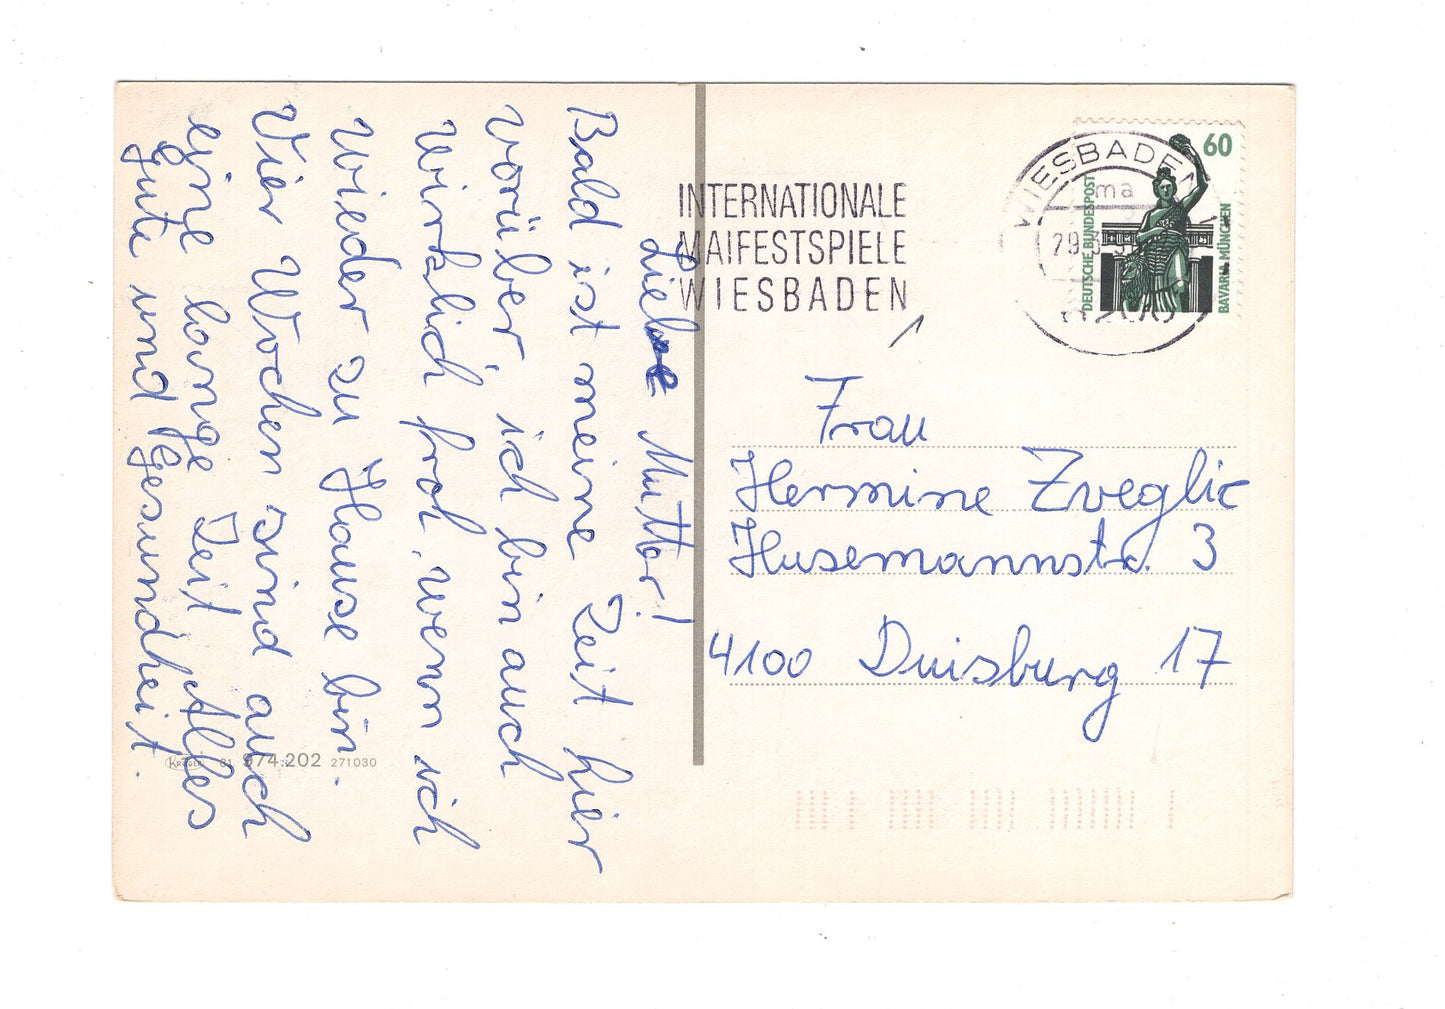 Liebe Mutter!
Bald ist meine Zeit hier
vorüber, ich bin auch
wirklich froh, wenn ich
wieder zu Hause bin.
Vier Wochen sind auch
eine lange Zeit. Alles
gute und Gesundheit.
INTERNATIONALE
MAIFESTSPIELE
WIESBADEN
WIESBADEN
ma
29.3
60
DEUTSCHE BUNDESPOST
BAVARIA MÜNCHEN
Frau
Hermine Zveglic
Husemannstr. 3
4100 Duisburg 17
KRÜGER 974.202 271030